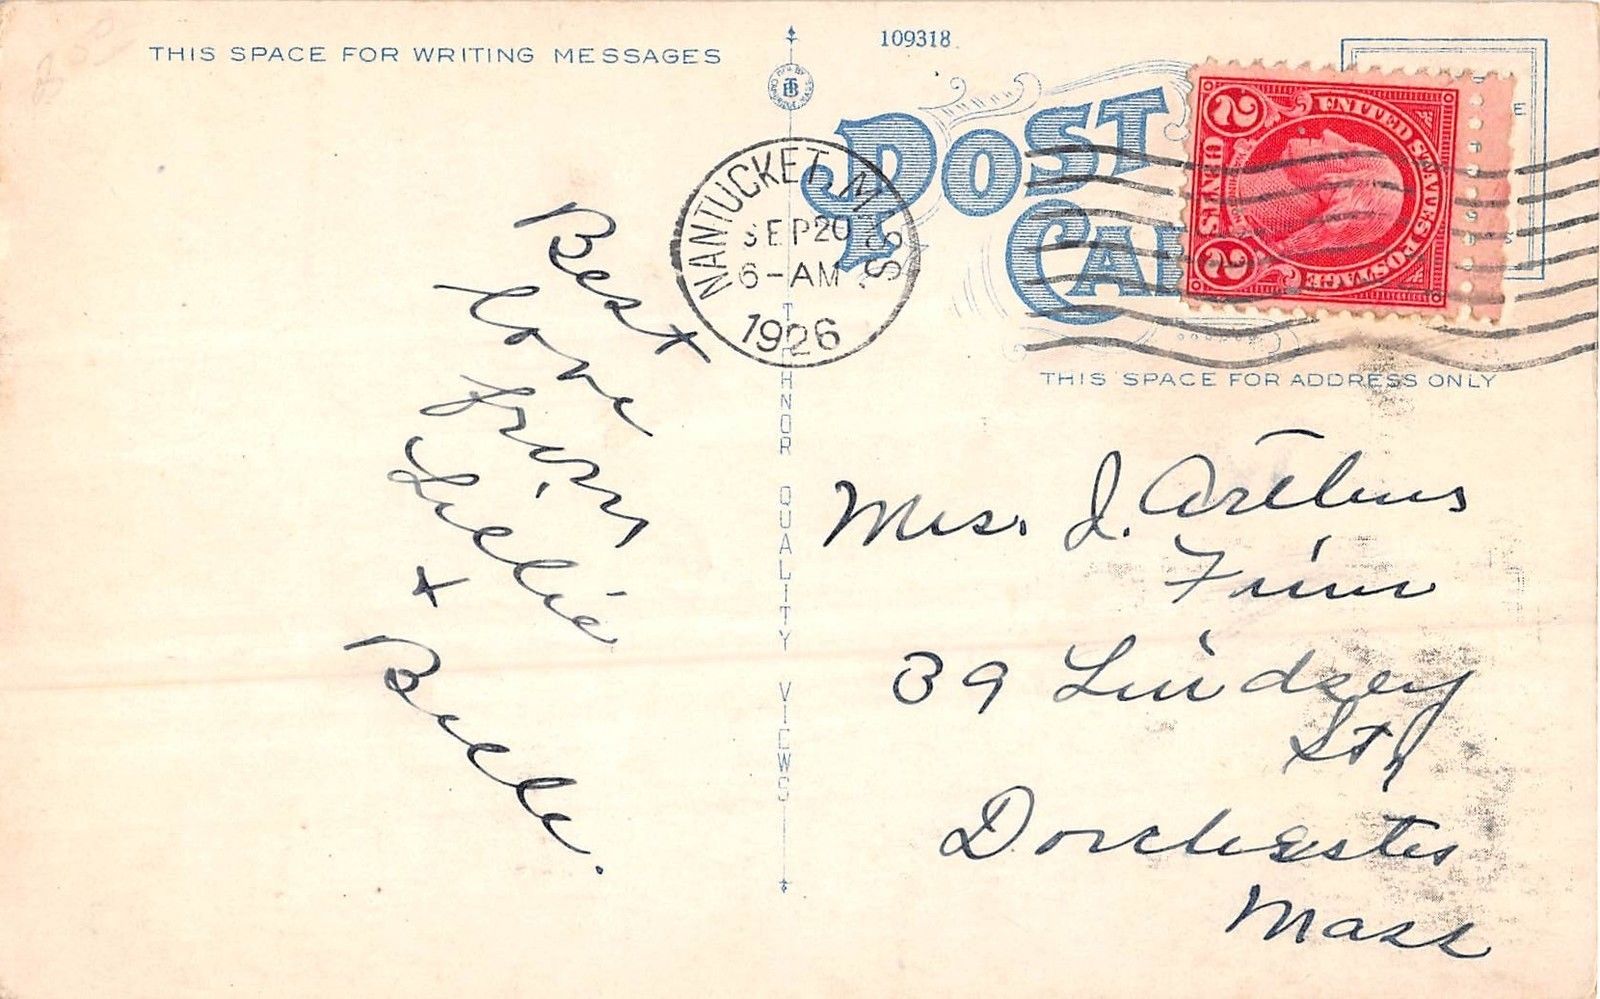 THIS SPACE FOR WRITING MESSAGES
109318
POST
CAR
NANTUCKET, MASS.
SEP 20
6-AM
1926
UNITED STATES POSTAGE
2 CENTS 2
THIS SPACE FOR ADDRESS ONLY
TICHNOR QUALITY VIEWS
Best
love
from
Lillie
+
Belle.
Mrs. J. Arthur
Finn
39 Lindsey
St,
Dorchester
Mass